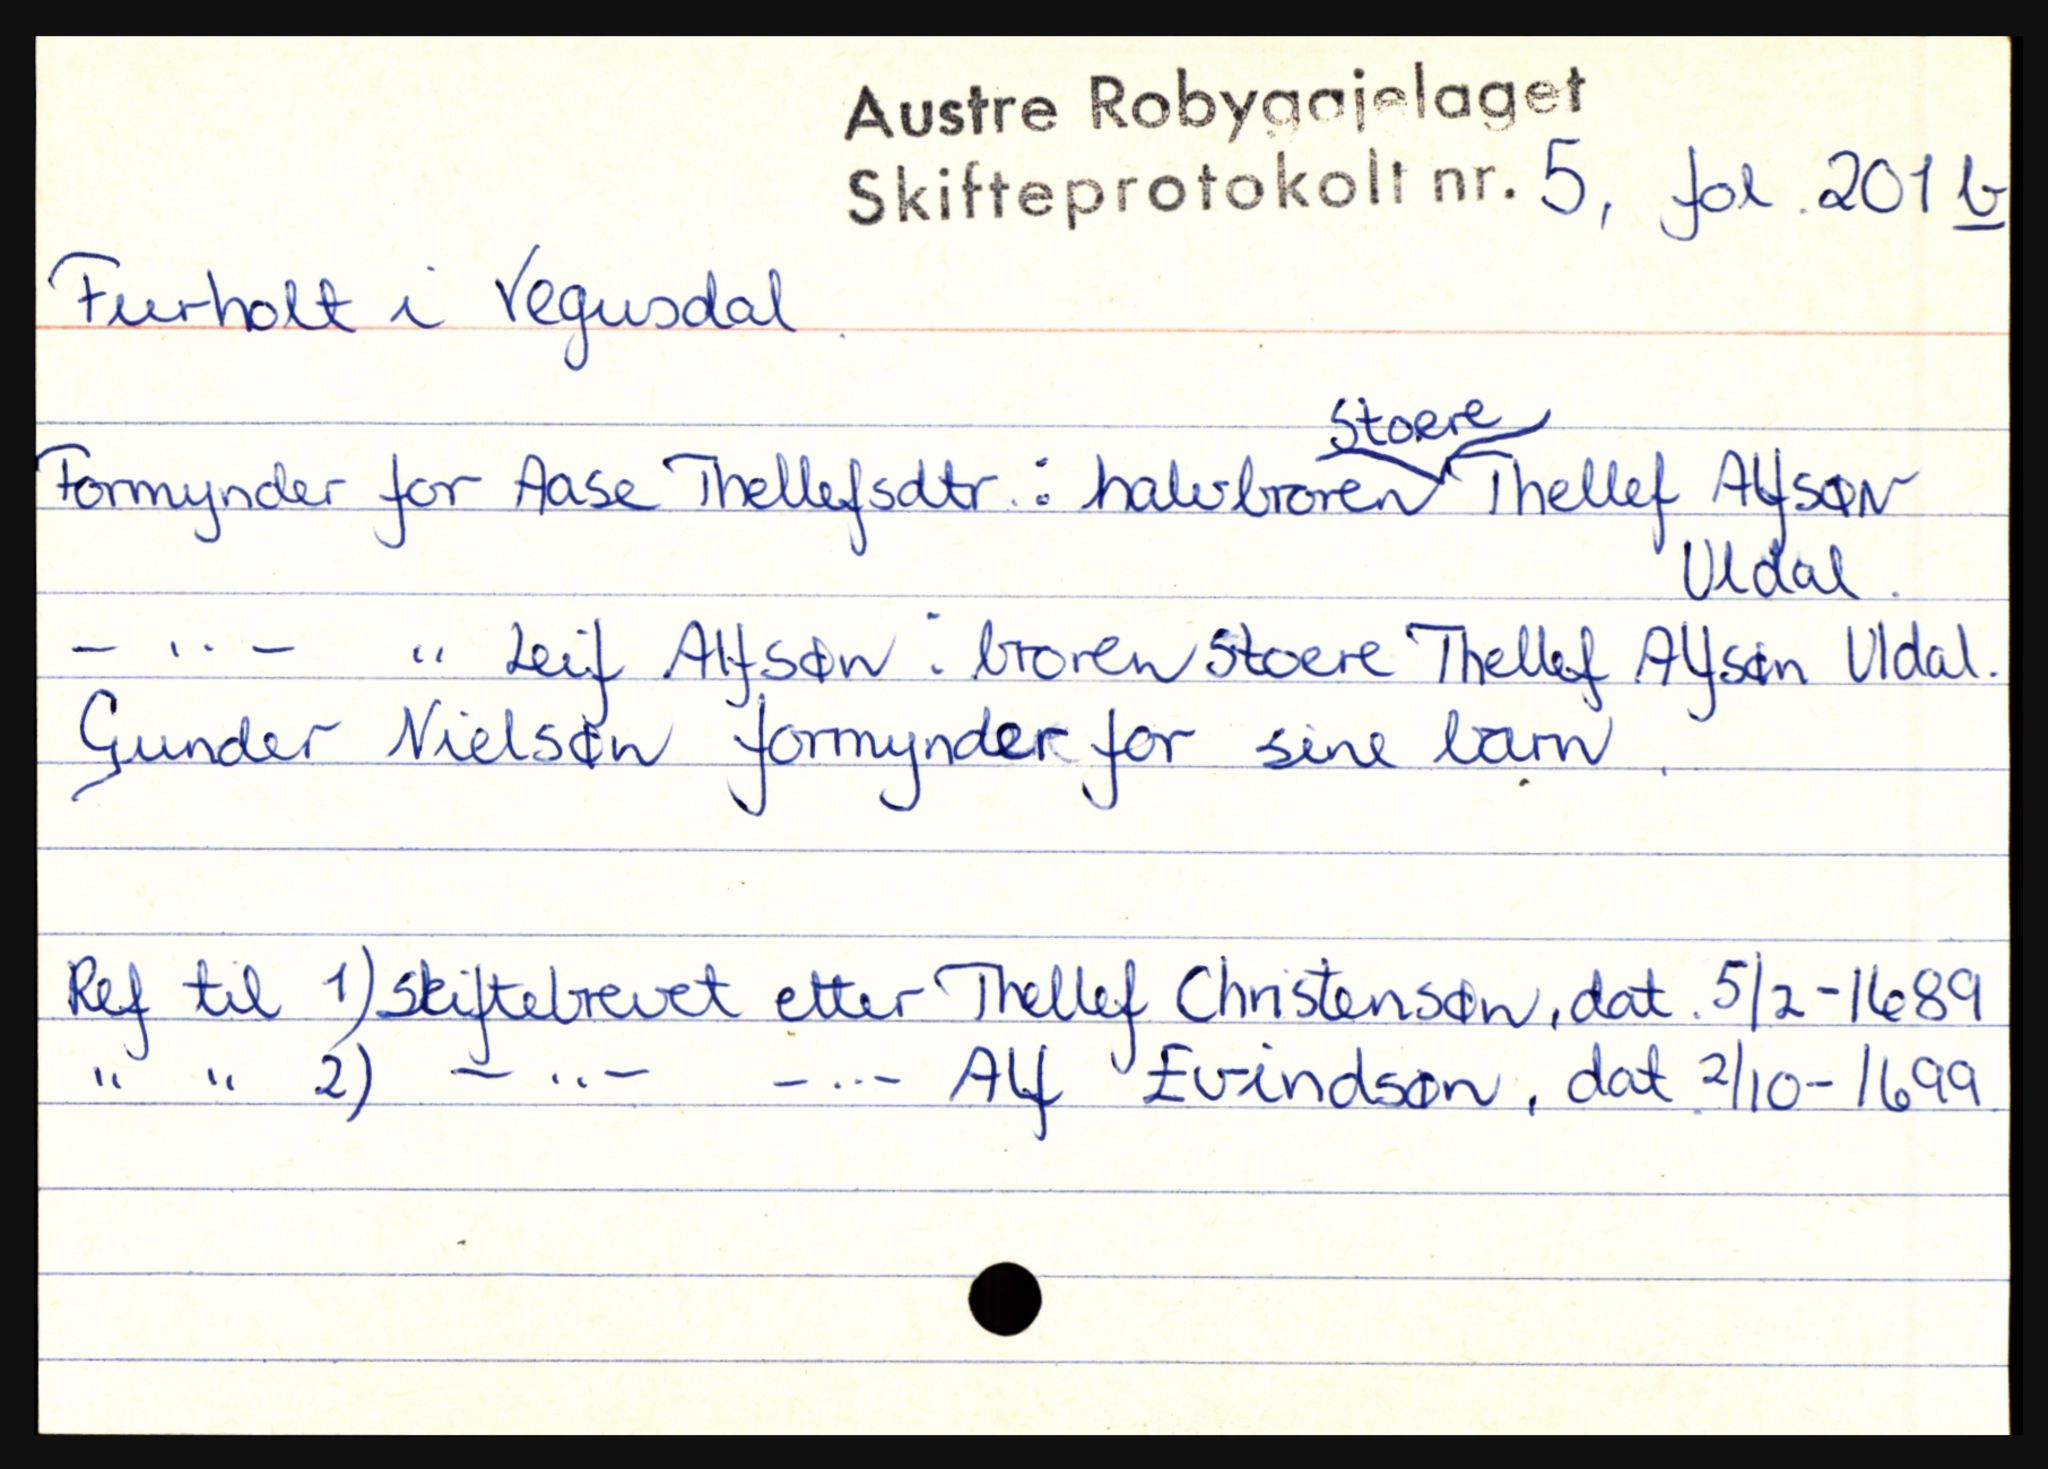 Austre Robyggjelaget
Skifteprotokoll nr. 5, fol. 201 b
Furholt i Vegusdal
Stoere
Formynder for Aase Thellefsdtr. : halvbroren Thellef Alfsøn
Uldal.
— " — " Leif Alfsøn : broren Stoere Thellef Alfsøn Uldal.
Gunder Nielsøn formynder for sine barn.
Ref til 1) skiftebrevet etter Thellef Christensøn, dat. 5/2-1689
" " 2) — " — — " — Alf Evindsøn, dat 2/10-1699